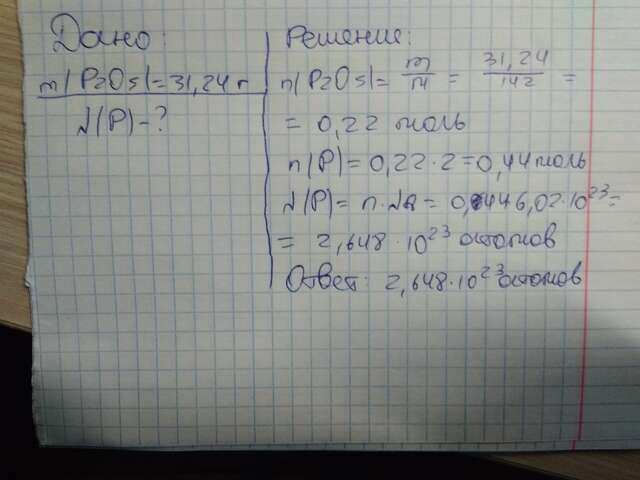 Дано:
m(P2O5)=31,24 г
N(P)-?
Решение:
n(P2O5)= m/M = 31,24/142 =
= 0,22 моль
n(P)=0,22·2=0,44 моль
N(P)= n·NA = 0,446,02·10²³=
= 2,648·10²³ атомов
Ответ: 2,648·10²³ атомов